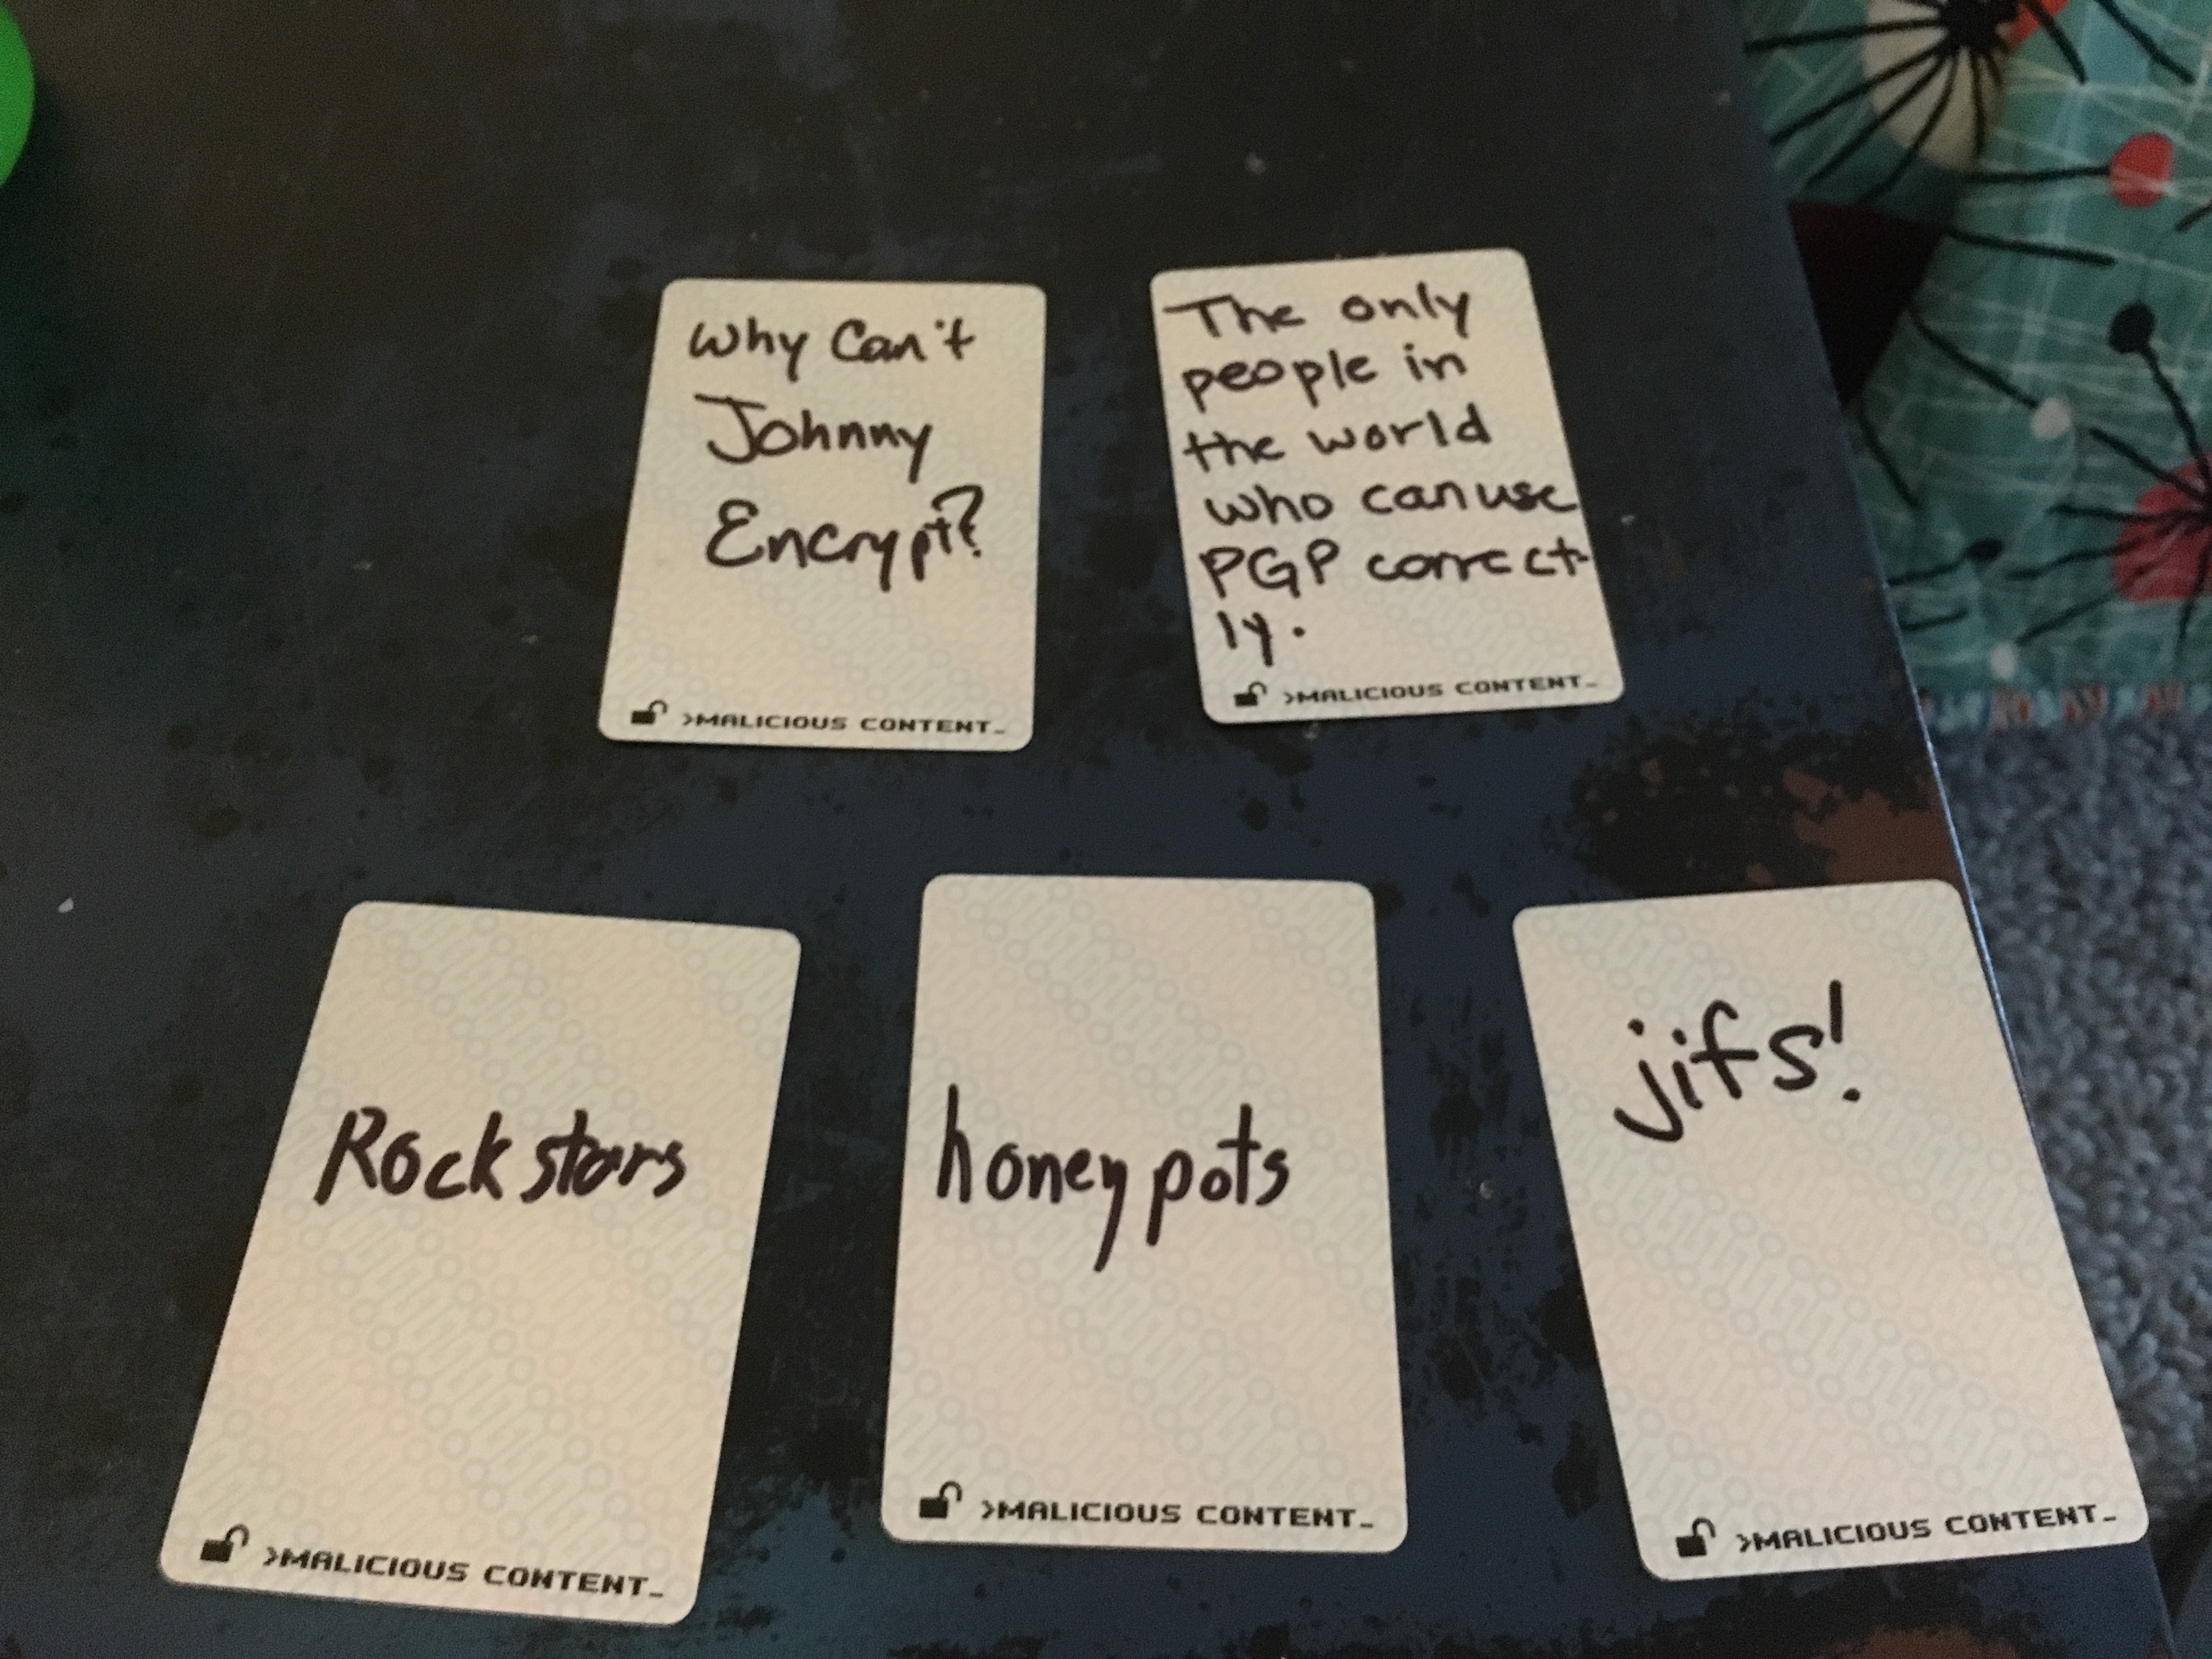 Why Can't
Johnny
Encrypt?
>MALICIOUS CONTENT_
The only
people in
the world
who can use
PGP correct
ly.
>MALICIOUS CONTENT_
Rock stars
>MALICIOUS CONTENT_
honeypots
>MALICIOUS CONTENT_
jifs!
>MALICIOUS CONTENT_